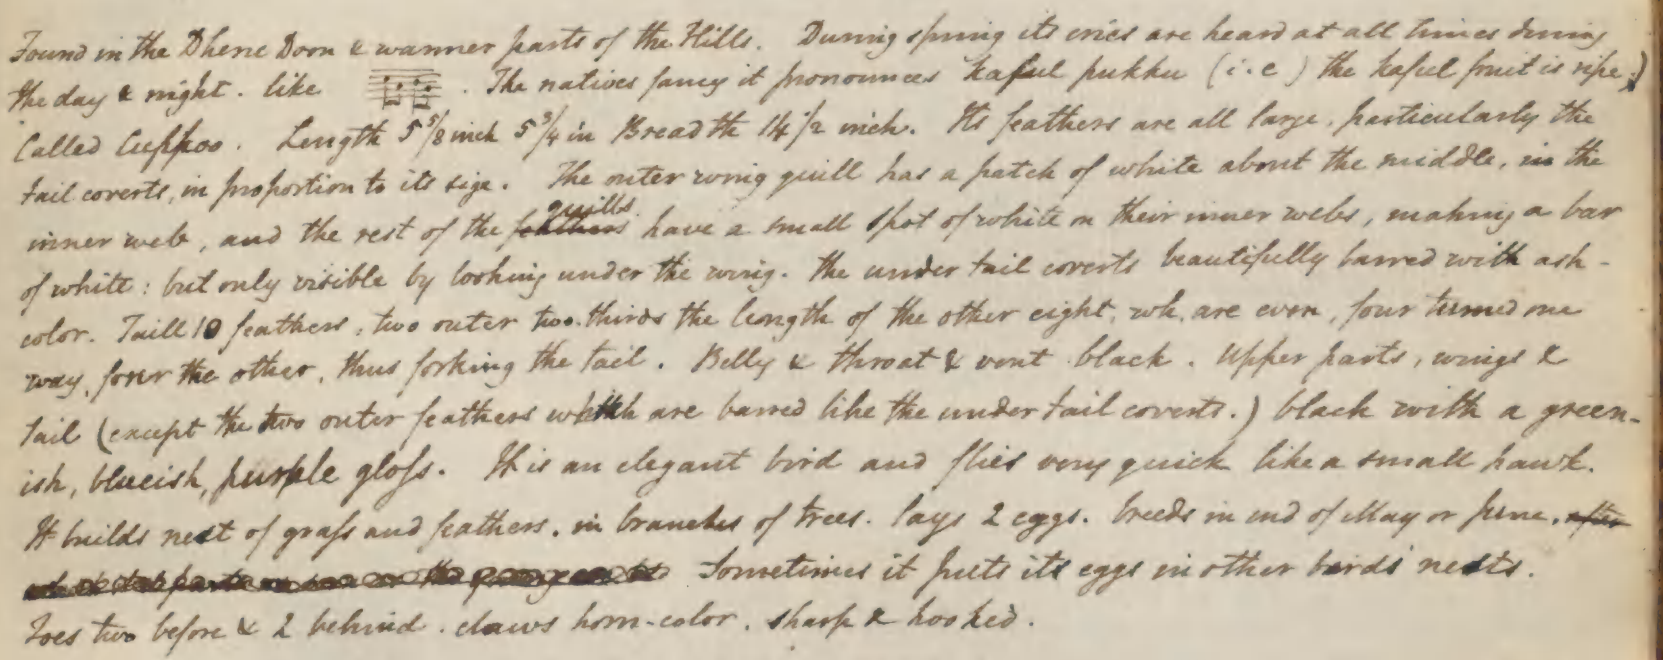 Found in the Dherie Doon & warmer parts of the Hills. During spring its cries are heard at all times during
the day & night. like . The natives fancy it pronounces kaful pukku (i.e) the kaful fruit is ripe.)
Called Cuppoo. Length 5 5/8 inch 5 3/4 in Breadth 14 1/2 inch. Its feathers are all large, particularly the
tail coverts, in proportion to its size. The outer wing quill has a patch of white about the middle, in the
inner web, and the rest of the feathers quills have a small spot of white on their inner webs, making a bar
of white: but only visible by looking under the wing. the under tail coverts beautifully barred with ash-
color. Taill 10 feathers, two outer two.thirds the length of the other eight, wh. are even, four turned one
way, four the other, thus forking the tail. Belly & throat & vent black. Upper parts, wings &
tail (except the two outer feathers which are barred like the under tail coverts.) black with a green-
ish, blueish, purple gloss. It is an elegant bird and flies very quick like a small hawk.
It builds nest of grass and feathers. in branches of trees. lays 2 eggs. breeds in end of May or June. after
Sometimes it puts its eggs in other birds nests.
Toes two before & 2 behind. claws horn-color. sharp & hooked.